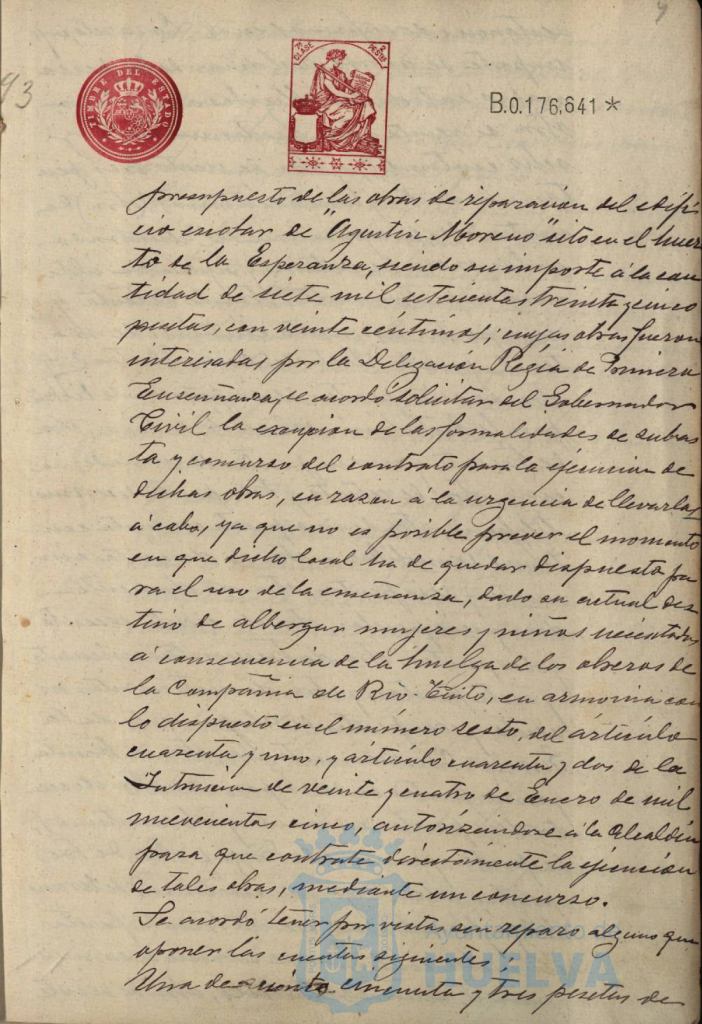 9
93
TIMBRE DEL ESTADO
7ª CLASE
2 PESTAS
B.0.176,641 *
presupuesto de las obras de reparación del edifi-
cio escolar de "Agustín Moreno" sito en el huer-
to de la Esperanza, siendo su importe á la can-
tidad de siete mil setecientas treinta y cinco
pesetas, con veinte céntimos; cuyas obras fueron
interesadas por la Delegación Regia de Primera
Enseñanza, se acordó solicitar del Gobernador
Civil la excepcion de las formalidades de subas-
ta y concurso del contrato para la ejecucion de
dichas obras, en razon á la urgencia de llevarlas
á cabo, ya que no es posible prever el momento
en que dicho local ha de quedar dispuesto pa-
ra el uso de la enseñanza, dado su actual des-
tino de albergar mujeres y niños necesitados
á consecuencia de la huelga de los obreros de
la Compañia de Rio-Tinto, en armonia con
lo dispuesto en el número sesto, del artículo
cuarenta y uno, y artículo cuarenta y dos de la
Intrucion de veinte y cuatro de Enero de mil
nuevecientas cinco, autorizándose á la Alcaldia
para que contrate directamente la ejecución
de tales obras, mediante un concurso.
Se acordó tener por vistas sin reparo alguno que
oponer las cuentas siguientes
Una de ciento cincuenta y tres pesetas de
HUELVA